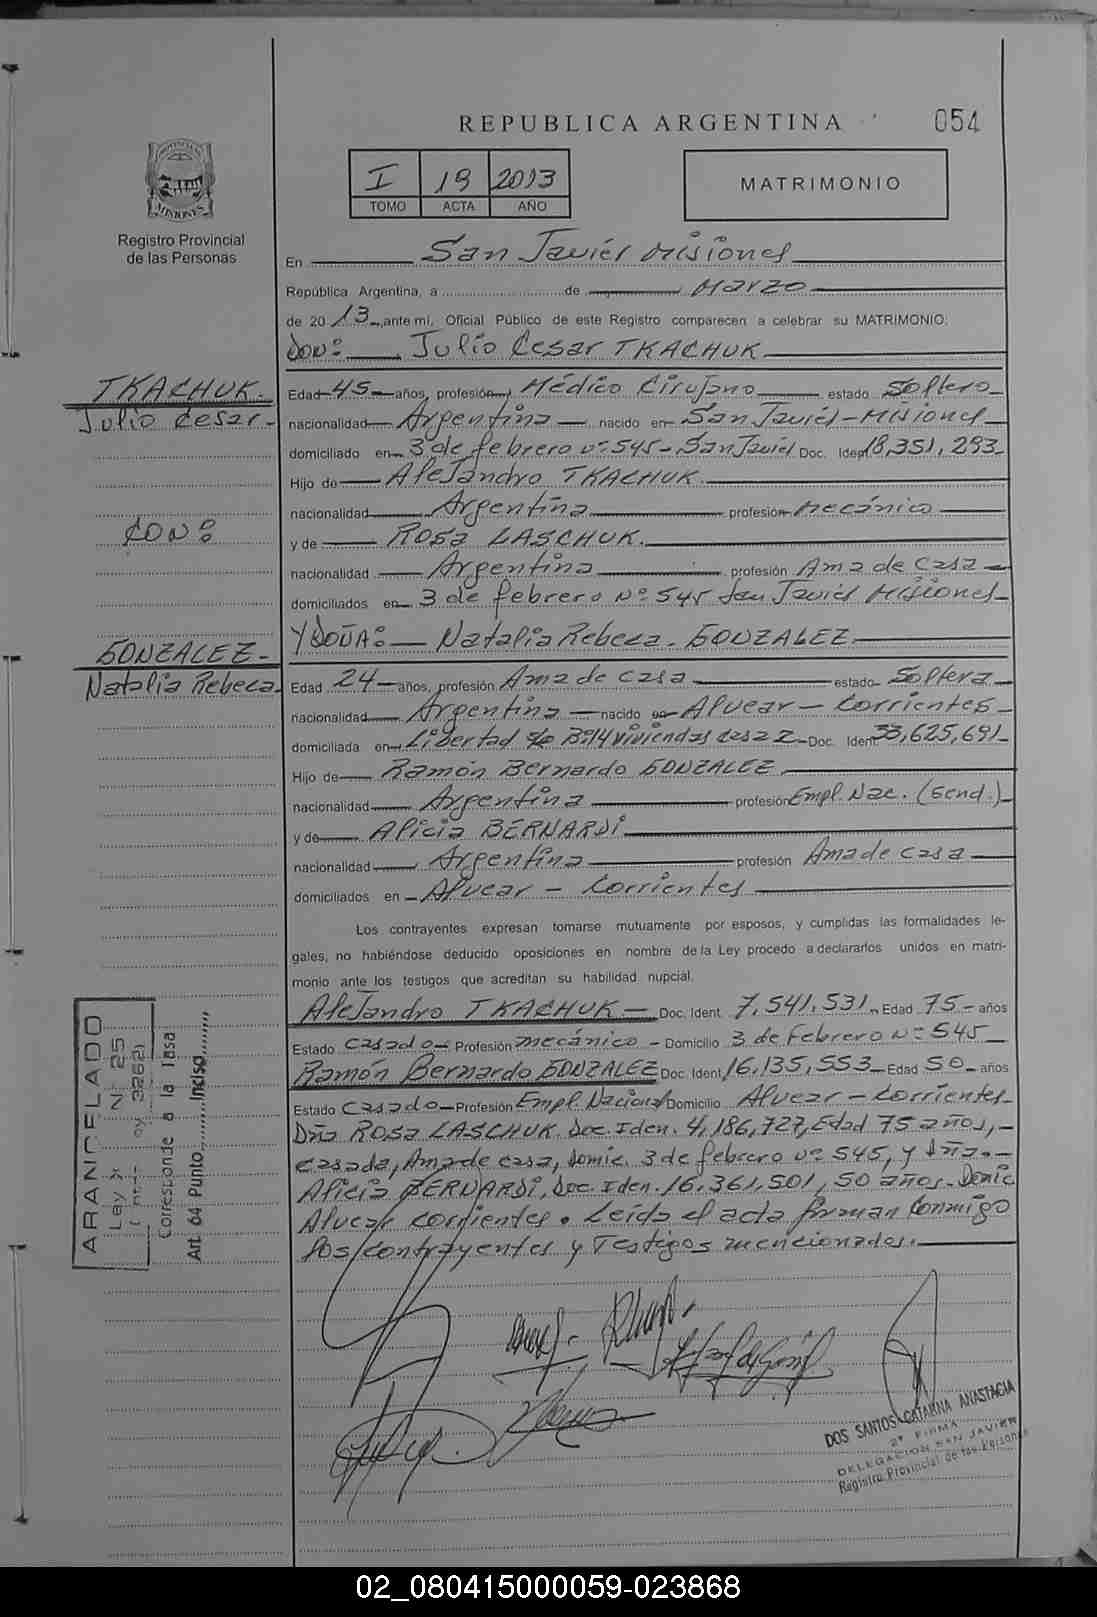 REPUBLICA ARGENTINA
054
PROVINCIA DE
MISIONES
Registro Provincial
de las Personas
I 19 2013
TOMO ACTA AÑO
MATRIMONIO
En San Javiér Misiones
República Argentina, a de Marzo
de 2013 ante mi, Oficial Público de este Registro comparecen a celebrar su MATRIMONIO:
DON: Julio Cesar TKACHUK
TKACHUK.
Julio Cesar-
CON:
GONZALEZ-
Natalia Rebeca
Edad 45 años, profesión Médico Cirujano estado Soltero
nacionalidad Argentina nacido en San Javiér-Misiones
domiciliado en 3 de febrero nº 545-San Javiér Doc. Ident 18,351,293
Hijo de Alejandro TKACHUK.
nacionalidad Argentina profesión Mecánico
y de Rosa LASCHUK.
nacionalidad Argentina profesión Ama de casa
domiciliados en 3 de febrero Nº 545 San Javiér Misiones
Y DOÑA: Natalia Rebeca. GONZALEZ.
Edad 24 años, profesión Ama de casa estado Soltera
nacionalidad Argentina nacido en Alvear - Corrientes
domiciliada en Libertad s/n Bº 14 viviendas casa 2 Doc. Ident 33,625,691
Hijo de Ramón Bernardo GONZALEZ
nacionalidad Argentina profesión Empl. Nac. (Gend.)
y de Alicia BERNARDI
nacionalidad Argentina profesión Ama de casa
domiciliados en Alvear - Corrientes
Los contrayentes expresan tomarse mutuamente por esposos, y cumplidas las formalidades le-
gales, no habiéndose deducido oposiciones en nombre de la Ley procedo a declararlos unidos en matri-
monio ante los testigos que acreditan su habilidad nupcial.
Alejandro TKACHUK- Doc. Ident 7,541,531 Edad 75 años
Estado Casado Profesión mecánico Domicilio 3 de febrero nº 545
Ramón Bernardo GONZALEZ Doc. Ident 16,135,553 Edad 50 años
Estado Casado Profesión Empl. Nacional Domicilio Alvear - Corrientes
Dña Rosa LASCHUK. Doc. Iden. 4,186,727, Edad 75 años,-
casada, Ama de casa, domic. 3 de febrero nº 545, y dña.-
Alicia BERNARDI, Doc. Iden. 16,361,501, 50 años. Domic
Alvear Corrientes. Leída el acta firman conmigo
los contrayentes y Testigos mencionados.
ARANCELADO
Ley X Nº 25
3262)
Corresponde a la Tasa
Art. 64 Punto Inciso
DOS SANTOS CATARINA ANASTACIA
2º FIRMA
DELEGACION SAN JAVIER
Registro Provincial de las Personas
02_080415000059-023868